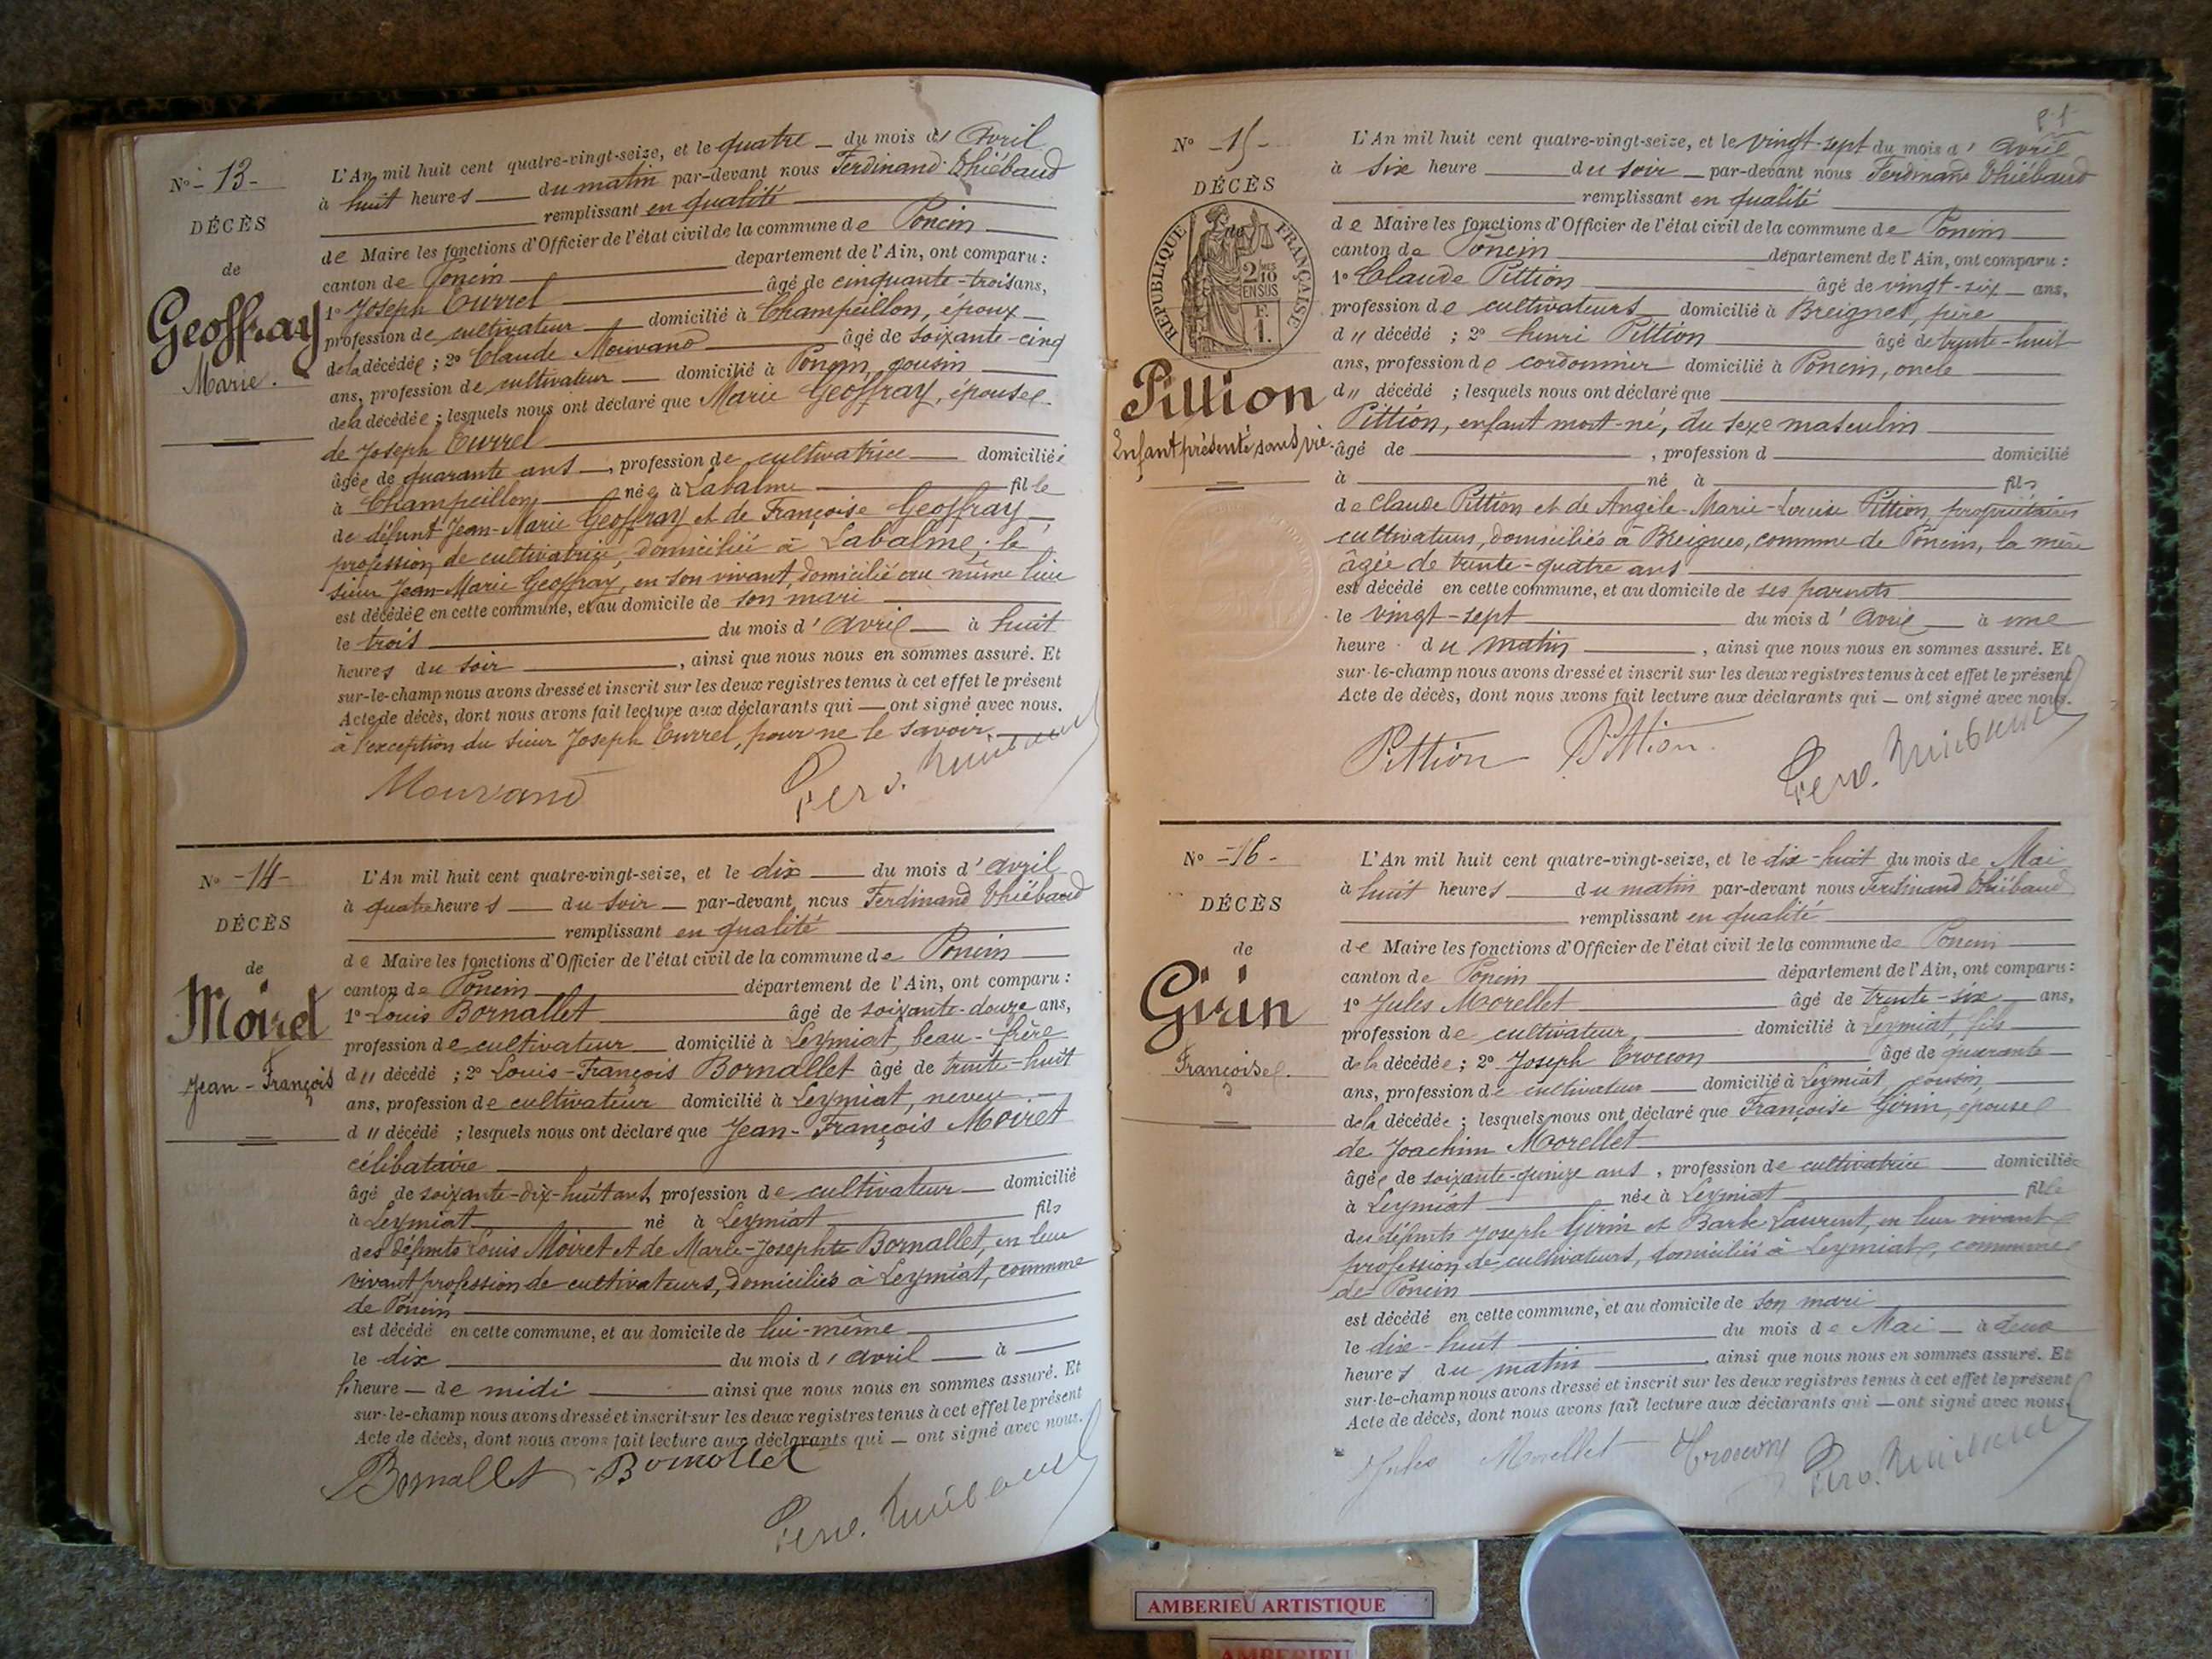 N° - 13 -
DÉCÈS
de
Geoffray
Marie.
L'An mil huit cent quatre-vingt-seize, et le quatre du mois d' Avril
à huit heures du matin par-devant nous Ferdinand Thiébaud
remplissant en qualité
de Maire les fonctions d'Officier de l'état civil de la commune de Poncin
canton de Poncin département de l'Ain, ont comparu :
1° Joseph Turrel âgé de cinquante-trois ans,
profession de cultivateur domicilié à Champeillon, époux
de la décédée ; 2° Claude Mouvand âgé de soixante-cinq
ans, profession de cultivateur domicilié à Poncin, cousin
de la décédée ; lesquels nous ont déclaré que Marie Geoffray, épouse
de Joseph Turrel
âgée de quarante ans, profession de cultivatrice domiciliée
à Champeillon née à Labalme fille
de défunt Jean-Marie Geoffray et de Françoise Geoffray
profession de cultivatrice, domiciliée à Labalme ; le
sieur Jean-Marie Geoffray, en son vivant, domicilié au même lieu
est décédée en cette commune, et au domicile de son mari
le trois du mois d' avril à huit
heures du soir , ainsi que nous nous en sommes assuré. Et
sur-le-champ nous avons dressé et inscrit sur les deux registres tenus à cet effet le présent
Acte de décès, dont nous avons fait lecture aux déclarants qui — ont signé avec nous.
à l'exception du sieur Joseph Turrel, pour ne le savoir.
Mouvand Ferd. Thiébaud
N° - 14 -
DÉCÈS
de
Moiret
Jean-François
L'An mil huit cent quatre-vingt-seize, et le dix du mois d' avril
à quatre heures du soir par-devant nous Ferdinand Thiébaud
remplissant en qualité
de Maire les fonctions d'Officier de l'état civil de la commune de Poncin
canton de Poncin département de l'Ain, ont comparu :
1° Louis Bornallet âgé de soixante-douze ans,
profession de cultivateur domicilié à Leymiat, beau-frère
d" décédé ; 2° Louis-François Bornallet âgé de trente-huit
ans, profession de cultivateur domicilié à Leymiat, neveu
d" décédé ; lesquels nous ont déclaré que Jean-François Moiret
célibataire
âgé de soixante-dix-huit ans, profession de cultivateur domicilié
à Leymiat né à Leymiat fils
des défunts Louis Moiret et de Marie-Josephte Bornallet, en leur
vivant, profession de cultivateurs, domiciliés à Leymiat, commune
de Poncin
est décédé en cette commune, et au domicile de lui-même
le dix du mois d' avril à
heure de midi ainsi que nous nous en sommes assuré. Et
sur-le-champ nous avons dressé et inscrit sur les deux registres tenus à cet effet le présent
Acte de décès, dont nous avons fait lecture aux déclarants qui — ont signé avec nous.
Bornallet Bornallet
Ferd. Thiébaud
N° - 15 -
DÉCÈS
REPUBLIQUE FRANÇAISE
2/10 EN SUS
Pittion
Enfant présenté sans vie
L'An mil huit cent quatre-vingt-seize, et le vingt-sept du mois d' avril
à six heure du soir par-devant nous Ferdinand Thiébaud
remplissant en qualité
de Maire les fonctions d'Officier de l'état civil de la commune de Poncin
canton de Poncin département de l'Ain, ont comparu :
1° Claude Pittion âgé de vingt-six ans,
profession de cultivateurs domicilié à Breignes, père
d" décédé ; 2° henri Pittion âgé de trente-huit
ans, profession de cordonnier domicilié à Poncin, oncle
d" décédé ; lesquels nous ont déclaré que
Pittion, enfant mort-né, du sexe masculin
âgé de , profession d domicilié
à né à fils
de Claude Pittion et de Angèle-Marie-Louise Pittion, propriétaires
cultivateurs, domiciliés à Breignes, commune de Poncin, la mère
âgée de trente-quatre ans
est décédé en cette commune, et au domicile de ses parents
le vingt-sept du mois d' avril à une
heure du matin , ainsi que nous nous en sommes assuré. Et
sur-le-champ nous avons dressé et inscrit sur les deux registres tenus à cet effet le présent
Acte de décès, dont nous avons fait lecture aux déclarants qui — ont signé avec nous.
Pittion Pittion. Ferd. Thiébaud
N° - 16 -
DÉCÈS
de
Girin
Françoise.
L'An mil huit cent quatre-vingt-seize, et le dix-huit du mois de Mai
à huit heures du matin par-devant nous Ferdinand Thiébaud
remplissant en qualité
de Maire les fonctions d'Officier de l'état civil de la commune de Poncin
canton de Poncin département de l'Ain, ont comparu :
1° Jules Morellet âgé de trente-six ans,
profession de cultivateur domicilié à Leymiat, fils
de la décédée ; 2° Joseph Trocon âgé de quarante
ans, profession de cultivateur domicilié à Leymiat cousin
de la décédée ; lesquels nous ont déclaré que Françoise Girin, épouse
de Joachim Morellet
âgée de soixante-quinze ans, profession de cultivatrice domiciliée
à Leymiat née à Leymiat fille
des défunts Joseph Girin et Barbe Laurent, en leur vivant
profession de cultivateurs, domiciliés à Leymiat, commune
de Poncin
est décédé en cette commune, et au domicile de son mari
le dix-huit du mois de Mai à deux
heures du matin , ainsi que nous nous en sommes assuré. Et
sur-le-champ nous avons dressé et inscrit sur les deux registres tenus à cet effet le présent
Acte de décès, dont nous avons fait lecture aux déclarants qui — ont signé avec nous.
Jules Morellet Ferd. Thiébaud
AMBERIEU ARTISTIQUE
AMBERIEU